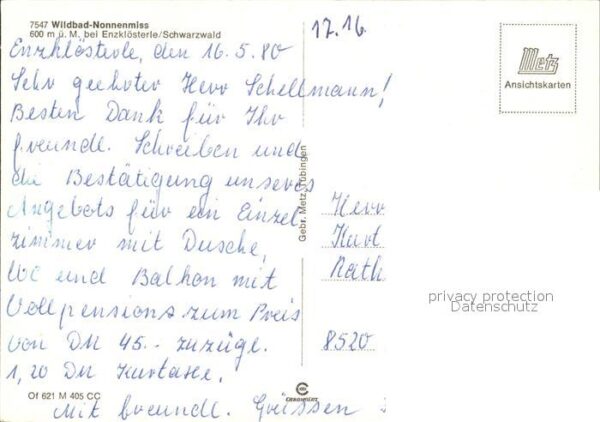 7547 Wildbad-Nonnenmiss
600 m ü. M. bei Enzklösterle/Schwarzwald
17.16
Enzklösterle, den 16.5.80
Sehr geehrter Herr Schellmann!
Besten Dank für Ihr
freundl. Schreiben und
die Bestätigung unseres
Angebots für ein Einzel
zimmer mit Dusche,
WC und Balkon mit
Vollpensions zum Preis
von DM 45.- zuzügl.
1,20 DM Kurtaxe.
Mit freundl. Grüssen
Of 621 M 405 CC
Gebr. Metz, Tübingen
CHROMOLUX
Metz
Ansichtskarten
Herr
Kurt
Rath
8520
privacy protection
Datenschutz